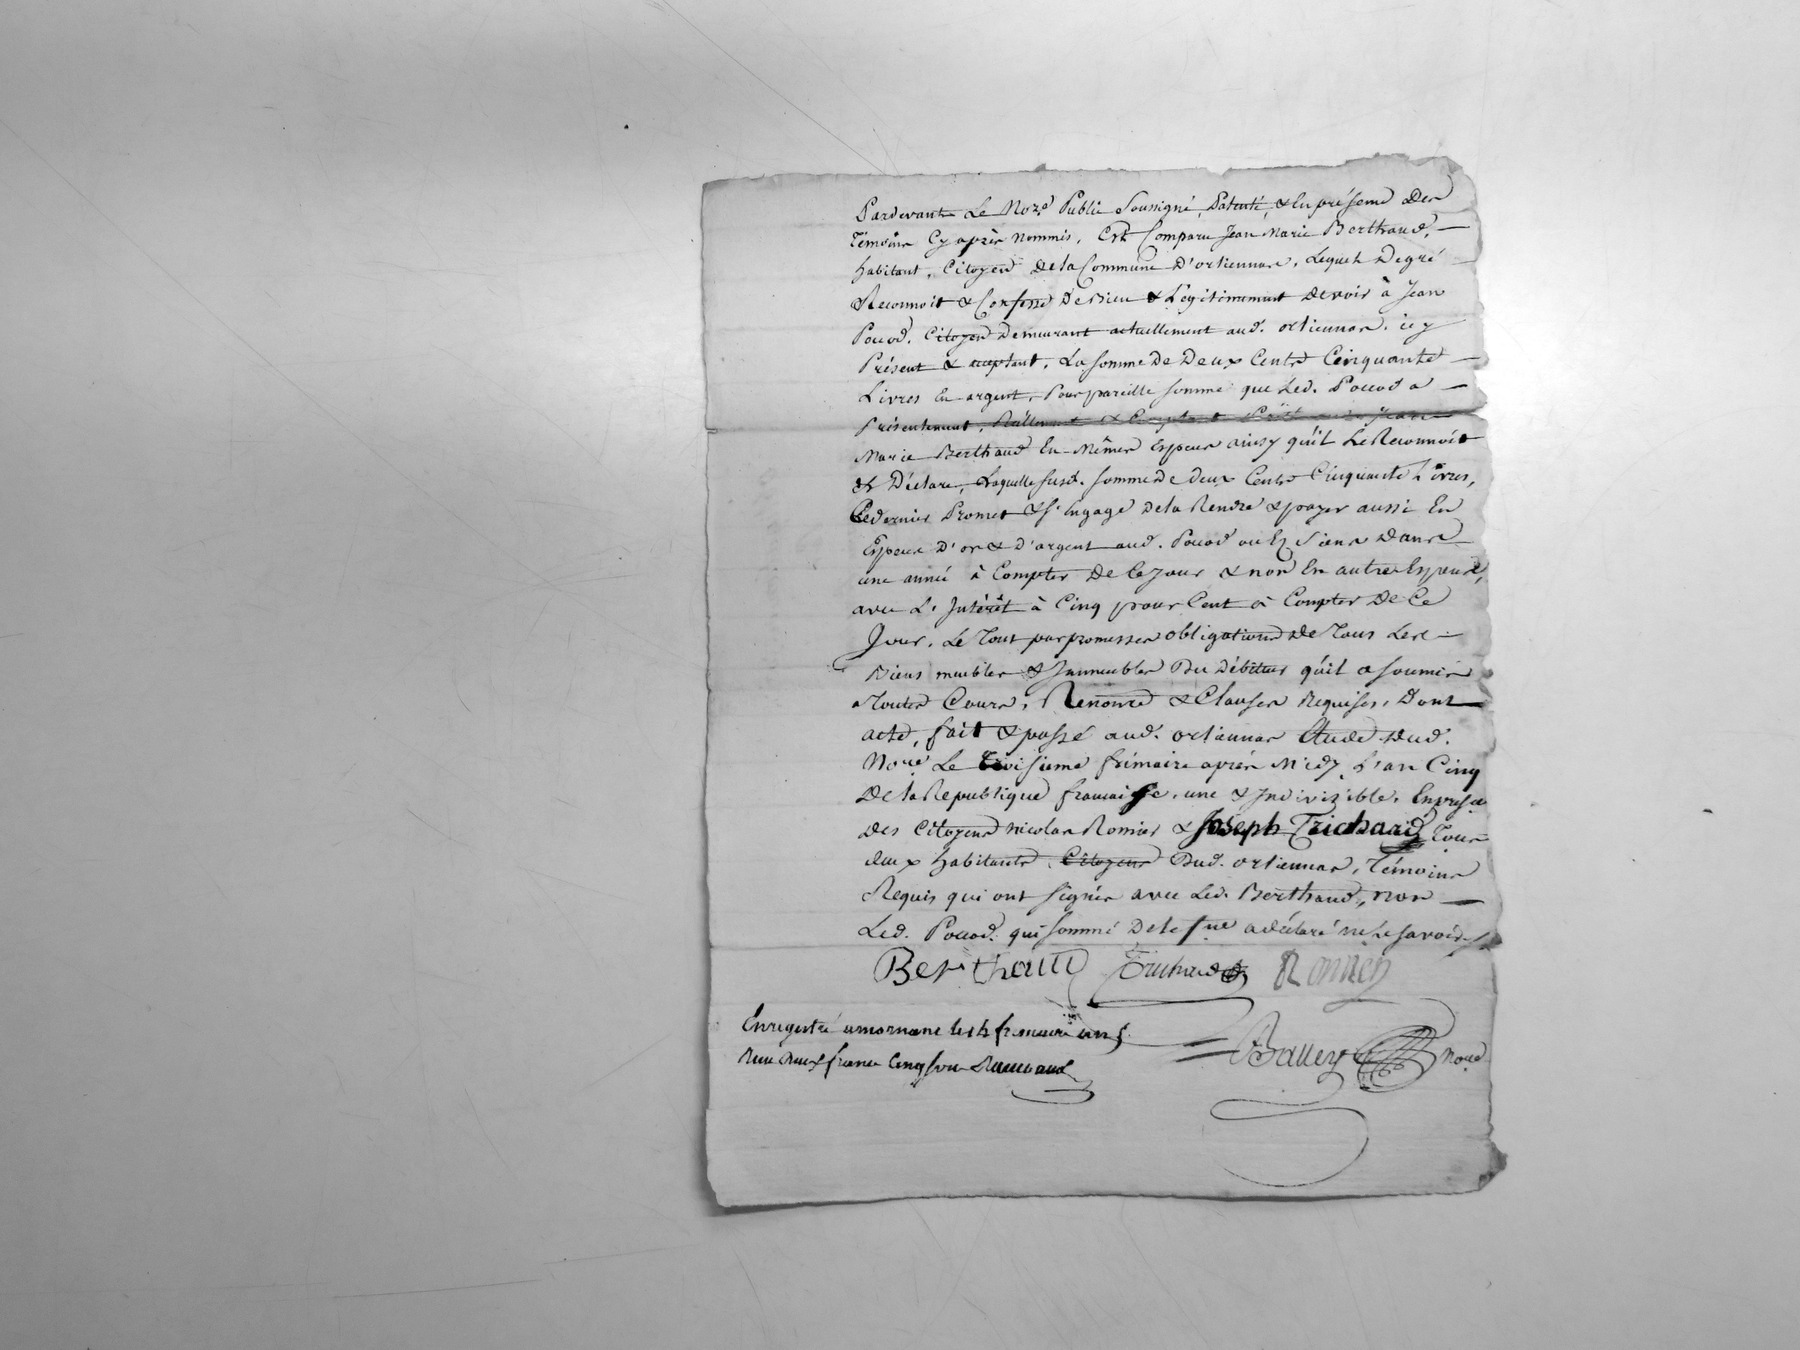 Pardevant Le No.re Public Soussigné, Patenté, & En présence Des
Témoins Cy après nommés, Est Comparu Jean Marie Berthaud,
habitant, Citoyen de la Commune D'orliennas, Lequel De gré
Reconnoit & Confesse Debvieu & Légitimement devoir à Jean
Pouod, Citoyen Demeurant actuellement aud. orliennas, icy
Présent & acceptant, La somme De Deux Cents Cinquante
Livres En argent, Pour pareille somme que Led. Pouod a
Présentement, Réellement & Comptant Jean
Marie Berthaud En Mêmes Especes ainsy qu'il Le Reconnoit
& Déclare, Laquelle susd. somme De deux Cents Cinquante Livres,
Ce dernier Promet & s'Engage De la Rendre & payer aussi En
Espece D'or & D'argent aud. Pouod ou Es Siens Dans
une année à Compter De Ce Jour & non En autres Especes,
avec L'Intérêt à Cinq pour Cent à Compter De Ce
Jour. Le Tout par promesses obligations De Tous Les
Biens meubles & Immeubles Du Débiteur qu'il a soumis
a Toutes Cours, Renonce & Clauses Requises, Dont
acte, fait & passé aud. orliennas Etude Dud.
No.re Le Troisieme frimaire après Midy, L'an Cinq
De la Republique francaise, une & Indivizible, En presce
des Citoyens Nicolas Romier & Joseph Trichard Tous
deux habitants Citoyens Dud. orliennas, Témoins
Requis qui ont signés avec Led. Berthaud, non
Led. Pouod. qui sommé De le fre a déclaré ne le savoir
Berthaud Trichard Romier
Enregistré a mornant le 14 frimaire an 5.
Reçu deux francs Cinq sous
Balley No.re